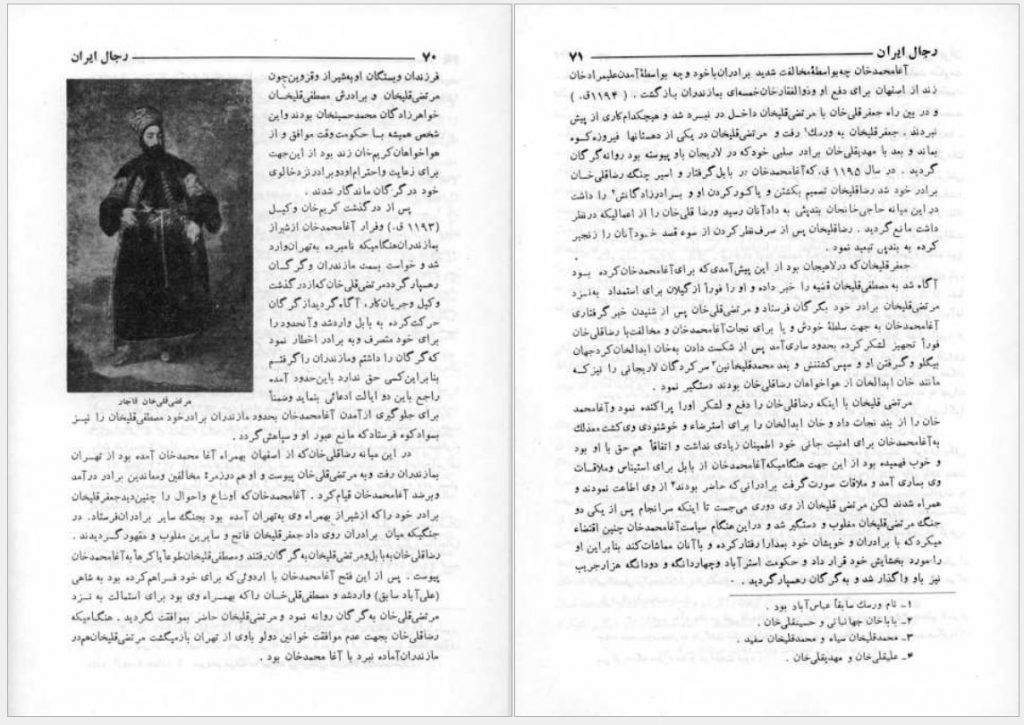 ۷۰ رجال ایران
فرزندان و بستگان او به شیراز و قزوین چون
مرتضی قلیخان و برادرش مصطفی قلیخان
خواهرزادگان محمدحسینخان بودند و این
شخص همیشه با حکومت وقت موافق و از
هواخواهان کریم خان زند بود از این جهت
برای رعایت و احترام او دو برادر نزد خالوی
خود در گرگان ماندگار شدند .
پس از درگذشت کریم خان وکیل
(۱۱۹۳ ق.) و فرار آغامحمدخان از شیراز
بمازندران هنگامیکه نامبرده به تهران وارد
شد و خواست بسمت مازندران و گرگان
رهسپار گردد مرتضی قلی خان که از درگذشت
وکیل و جریان کار، آگاه گردید از گرگان
حرکت کرده به بابل وارد شد و آنحدود را
برای خود متصرف و به برادر اخطار نمود
که گرگان را داشتم و مازندران را گرفتم
بنابراین کسی حق ندارد باین حدود آمده
راجع باین دو ایالت ادعائی بنماید و ضمناً
مرتضی قلی خان قاجار
برای جلوگیری از آمدن آغامحمدخان بحدود مازندران برادر خود مصطفی قلیخان را نیز
بسوادکوه فرستاد که مانع عبور او و سپاهش گردد .
در این میانه رضاقلی خان که از اصفهان بهمراه آغا محمدخان آمده بود از تهران
بمازندران رفت و به مرتضی قلی خان پیوست و او هم در زمرۀ مخالفین و معاندین برادر درآمد
و برضد آغامحمدخان قیام کرد . آغامحمدخان که اوضاع و احوال را چنین دید جعفرقلیخان
برادر خود را که از شیراز بهمراه وی به تهران آمده بود بجنگ سایر برادران فرستاد. در
جنگیکه میان برادران روی داد جعفرقلیخان فاتح و سایرین مغلوب و مقهور گردیدند .
رضاقلی خان به بابل و مرتضی قلیخان به گرگان رفتند و مصطفی قلیخان طوعاً یا کرهاً به آغامحمدخان
پیوست . پس از این فتح آغامحمدخان با اردوئی که برای خود فراهم کرده بود به شاهی
(علی آباد سابق) وارد شد و مصطفی قلی خان را که بهمراه وی بود برای استمالت به نزد
مرتضی قلیخان به گرگان روانه نمود و مرتضی قلیخان حاضر بموافقت نگردید . هنگامیکه
رضاقلی خان بجهت عدم موافقت خوانین دولو بااوی از تهران بازمیگشت مرتضی قلیخان هم در
مازندران آماده نبرد با آغا محمدخان بود .
رجال ایران ۷۱
آغامحمدخان چه بواسطۀ مخالفت شدید برادران با خود و چه بواسطۀ آمدن علیمرادخان
زند از اصفهان برای دفع او و ذوالفقارخان خمسه‌ای بمازندران بازگشت . (۱۱۹۴ ق. )
و در بین راه جعفرقلی خان با مرتضی قلیخان داخل در نبرد شد و هیچکدام کاری از پیش
نبردند . جعفرقلیخان به ورسك۱ رفت و مرتضی قلیخان در یکی از دهستانها فیروزکوه
بماند و بعد با مهدیقلی خان برادر صلبی خود که در لاریجان باو پیوسته بود روانه گرگان
گردید . در سال ۱۱۹۵ ق. که آغامحمدخان در بابل گرفتار و اسیر چنگ رضاقلی خان
برادر خود شد رضاقلیخان تصمیم بکشتن و یا کور کردن او و برادرزادگانش۲ را داشت
در این میانه حاجی خانجان بندپئی به داد آنان رسید و رضا قلی خان را از اعمالیکه درنظر
داشت مانع گردید . رضاقلیخان پس از صرف نظر کردن از سوء قصد خود آنان را زنجیر
کرده به بندپی تبعید نمود .
جعفرقلیخان که در لاهیجان بود از این پیش آمدی که برای آغامحمدخان کرده بود
آگاه شد به مصطفی قلیخان قضیه را خبر داده و او را فوراً از گیلان برای استمداد به نزد
مرتضی قلیخان برادر خود بگرگان فرستاد و مرتضی قلی خان پس از شنیدن خبر گرفتاری
آغامحمدخان به جهت سلطۀ خودش و یا برای نجات آغامحمدخان و مخالفت با رضاقلی خان
فوراً تجهیز لشکر کرده بحدود ساری آمد پس از شکست دادن به خان ابدالخان کرد جهان
بیگلو و گرفتن او و سپس کشتنش و بعد محمدقلیخانین۳ سرکردگان لاریجانی را نیز که
مانند خان ابدالخان از هواخواهان رضاقلی خان بودند دستگیر نمود .
مرتضی قلیخان با اینکه رضاقلی خان را دفع و لشکر او را پراکنده نمود و آغامحمد
خان را از بند نجات داد و خان ابدالخان را برای استرضاء و خوشنودی وی کشت معذلك
به آغامحمدخان برای امنیت جانی خود اطمینان زیادی نداشت و اتفاقاً هم حق با او بود
و خوب فهمیده بود از این جهت هنگامیکه آغامحمدخان از بابل برای استیناس و ملاقات
وی بساری آمد و ملاقات صورت گرفت برادرانی که حاضر بودند۴ از وی اطاعت نمودند و
همراه شدند لکن مرتضی قلیخان از وی دوری می جست تا اینکه سرانجام پس از یکی دو
جنگ مرتضی قلیخان مغلوب و دستگیر شد و در این هنگام سیاست آغامحمدخان چنین اقتضاء
میکرد که با برادران و خویشان خود بمدارا رفتار کرده و با آنان مماشات کند بنابراین او
را مورد بخشایش خود قرار داد و حکومت استرآباد و چهاردانگه و دودانگه هزارجریب
نیز باو واگذار شد و به گرگان رهسپار گردید .
۱ـ نام ورسك سابقاً عباس آباد بود .
۲ـ باباخان جهانبانی و حسینقلی خان .
۳ـ محمدقلیخان سیاه و محمدقلیخان سفید .
۴ـ علیقلی خان و مهدیقلی خان .